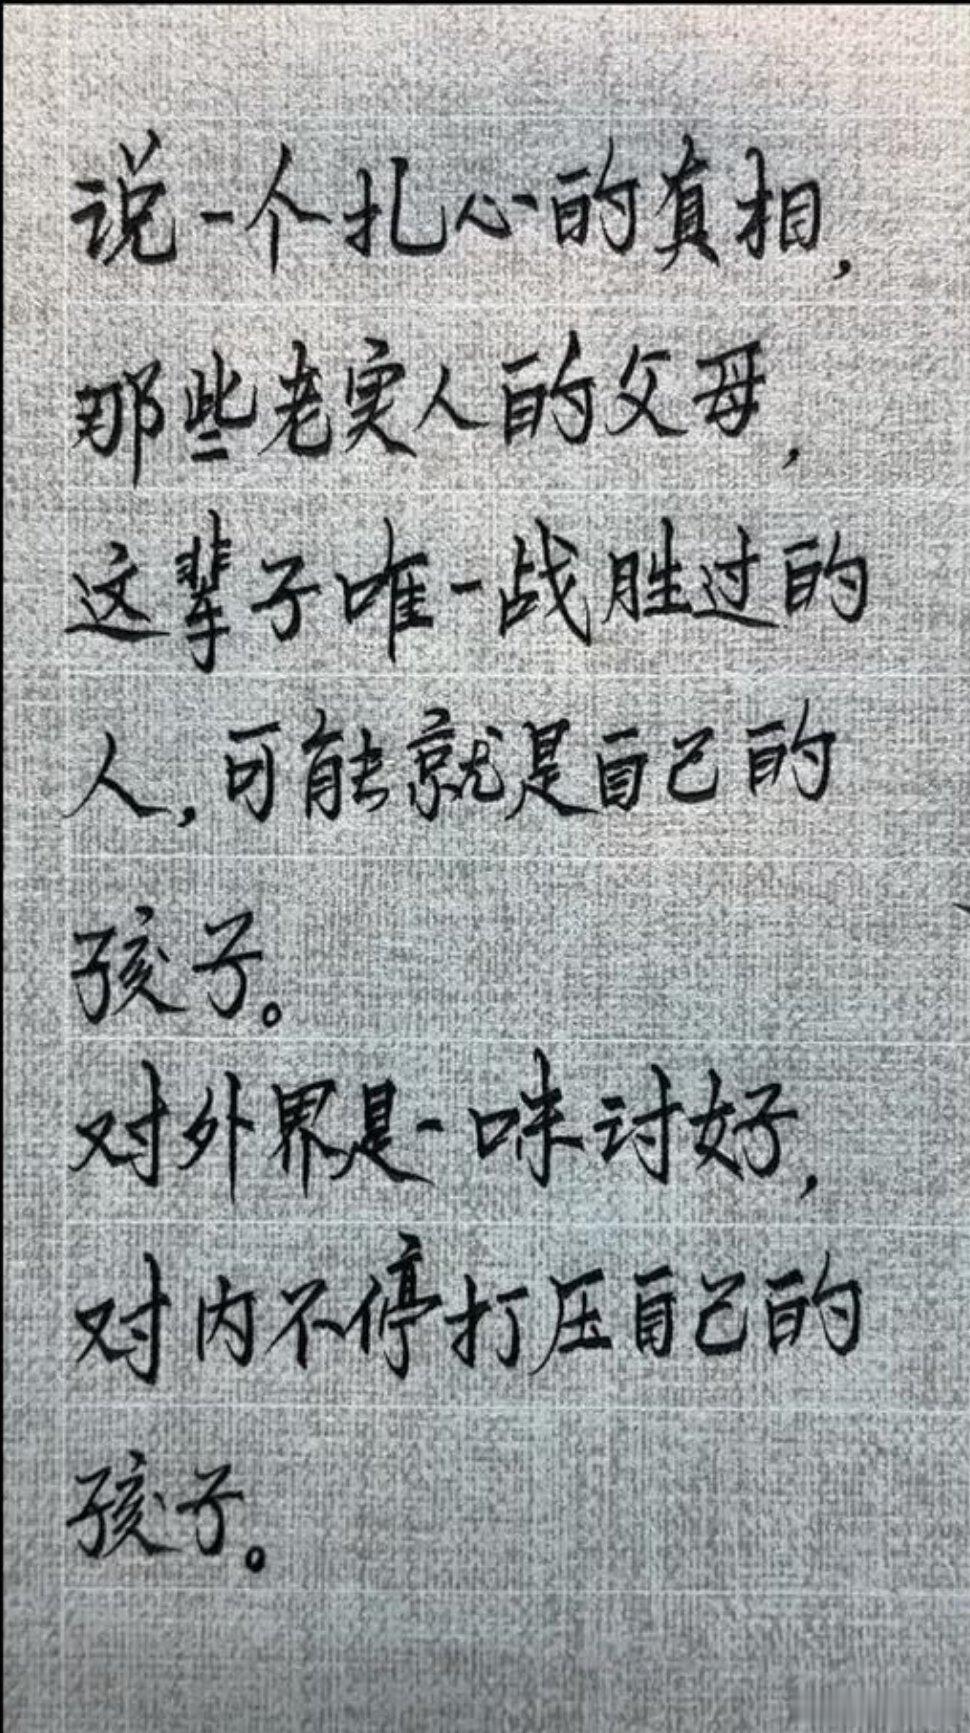 说一个扎心的真相，
那些老实人的父母，
这辈子唯一战胜过的
人，可能就是自己的
孩子。
对外界是一味讨好，
对内不停打压自己的
孩子。